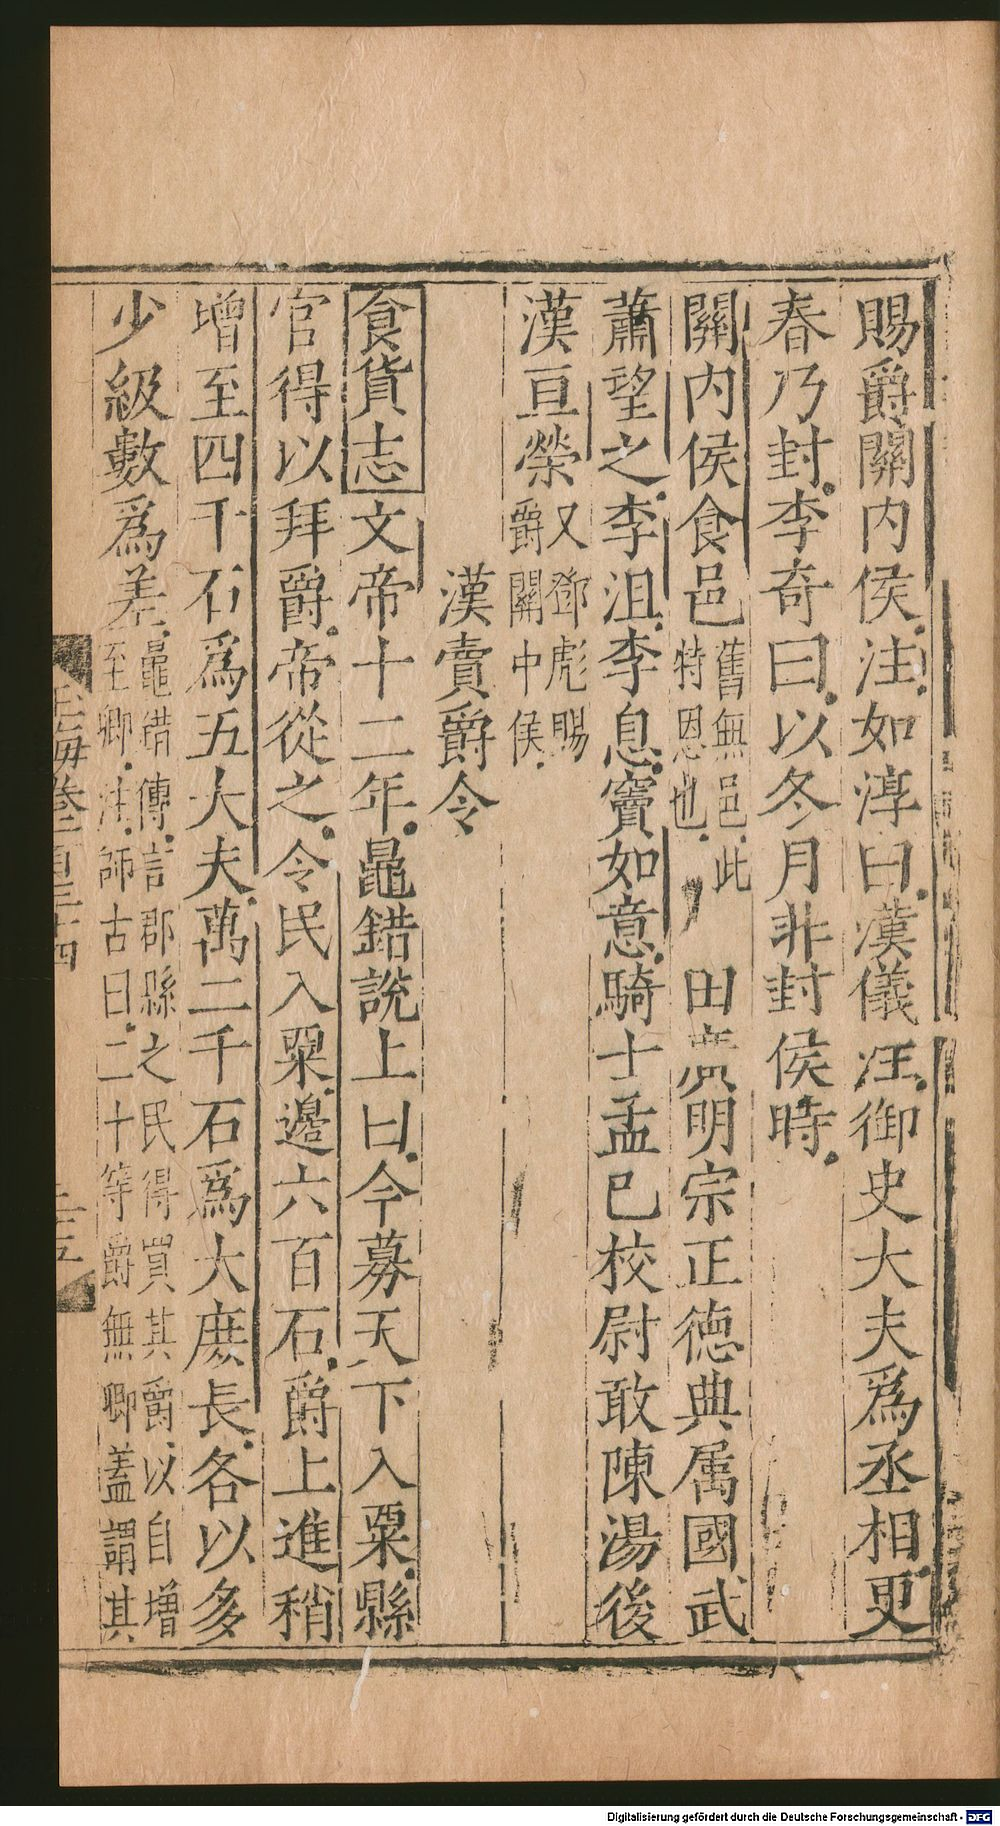 賜爵關内侯注如淳曰漢儀注御史大夫爲丞相更
春乃封李奇曰以冬月非封侯時
關内侯食邑舊無邑此特恩也 田廣明宗正德典属國武
蕭望之李沮李息竇如意騎士孟已校尉敢陳湯後
漢亘榮又鄧彪賜爵關中侯
漢賣爵令
食貨志文帝十二年鼂錯説上曰今募天下入粟縣
官得以拜爵帝從之令民入粟邊六百石爵上進稍
增至四千石爲五大夫萬二千石爲大庶長各以多
少級數爲差鼂錯傳言郡縣之民得買其爵以自增至卿注師古曰二十等爵無卿蓋謂其
玉海卷一百三十四
Digitalisierung gefördert durch die Deutsche Forschungsgemeinschaft - DFG